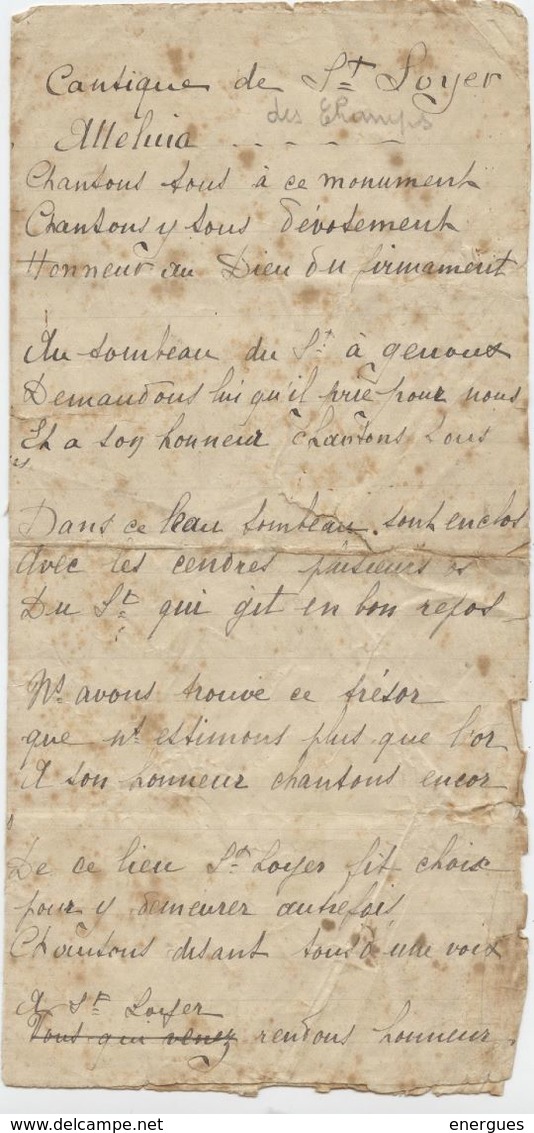 Cantique de St Loyer
des Champs
Alleluia - - - - -
Chantons tous à ce monument
Chantons y tous dévotement
Honneur au Dieu du firmament
Au tombeau du St à genoux
Demandons lui qu'il prie pour nous
Et a son honneur chantons tous
Dans ce beau tombeau sont enclos
Avec les cendres plusieurs os
Du St qui git en bon repos
Ns avons trouvé ce trésor
que ns estimons plus que l'or
A son honneur chantons encor
De ce lieu St Loyer fit choix
pour y demeurer autrefois
Chantons disant tous à une voix
A St Loyer
Vous qui venez rendons honneur
energues
www.delcampe.net